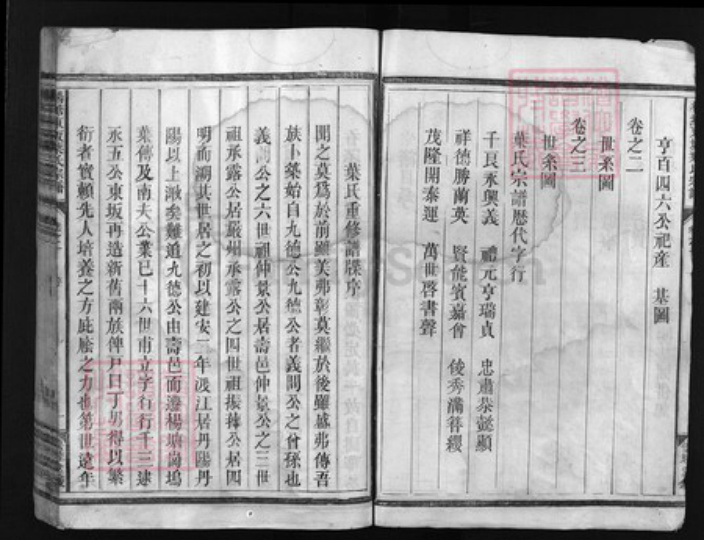 亨百四六公祀産　基圖
卷之二
世系圖
卷之三
世系圖
葉氏宗譜歷代字行
千良承興義　禮元亨瑞貞　忠肅恭懿顯
祥德勝蘭英　賢能賓嘉會　俊秀滿簪纓
茂隆開泰運　萬世啓書聲
葉氏重修譜牒序
聞之莫為於前雖美弗彰莫繼於後雖盛弗傳吾
族上葉始自九德公九德公者義問公之曾孫也
義問公之六世祖仲景公居壽邑仲景公之三世
祖承露公居嚴州承露公之四世祖振公居四
明而湖其世居之初以建安二年渡江居丹陽丹
陽以上湫矣難道九德公由壽邑而遷楊塘崗塢
葉傳及南夫公業已十六世甫立字行行千三逮
承五公東坂再造新舊兩族俾尸口丁男得以繁
衍者實賴先人培養之方庇廕之力也第世遠年